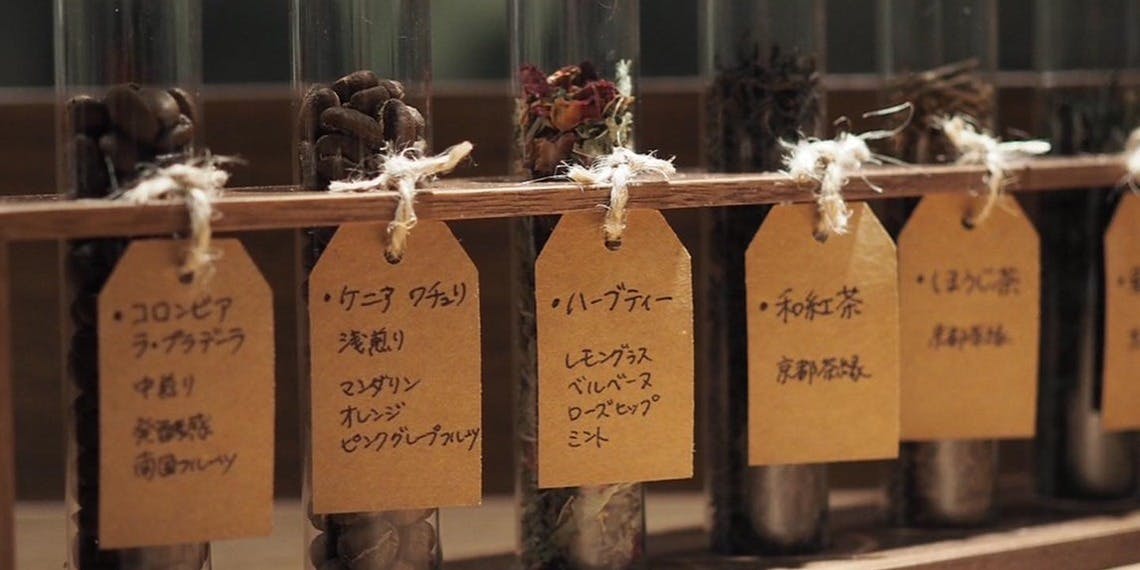 ・コロンビア
ラ・プラデーラ
中煎り
発酵感
南国フルーツ
・ケニア ワチュリ
浅煎り
マンダリン
オレンジ
ピンクグレープフルーツ
・ハーブティー
レモングラス
ベルベーヌ
ローズヒップ
ミント
・和紅茶
京都茶縁
・ほうじ茶
京都茶縁